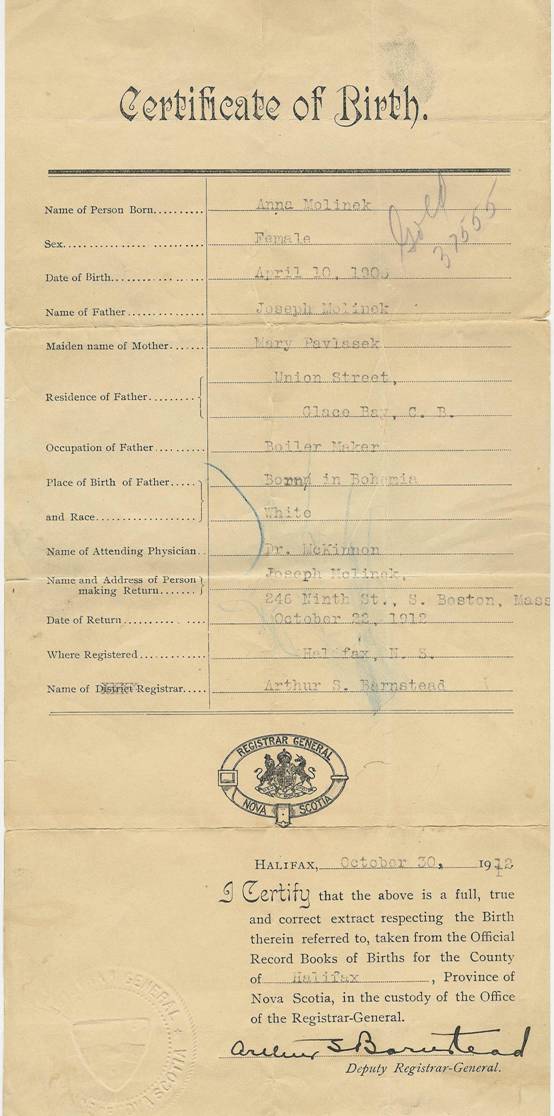 Certificate of Birth.
Gold
37555
Name of Person Born.......... Anna Molinek
Sex................................. Female
Date of Birth..................... April 10, 190
Name of Father.................. Joseph Molinek
Maiden name of Mother....... Mary Pavlasek
Residence of Father......... Union Street,
Glace Bay, C. B.
Occupation of Father.......... Boiler Maker
Place of Birth of Father..... Born in Bohemia
and Race..................... White
Name of Attending Physician.. Dr. McKinnon
Name and Address of Person Joseph Molinek,
making Return....... 246 Ninth St., S. Boston, Mass
Date of Return.................. October 22, 1912
Where Registered............... Halifax, N. S.
Name of District Registrar..... Arthur S. Barnstead
REGISTRAR GENERAL
NOVA SCOTIA
HALIFAX, October 30, 1912
I Certify that the above is a full, true
and correct extract respecting the Birth
therein referred to, taken from the Official
Record Books of Births for the County
of Halifax, Province of
Nova Scotia, in the custody of the Office
of the Registrar-General.
Arthur S Barnstead
Deputy Registrar-General.